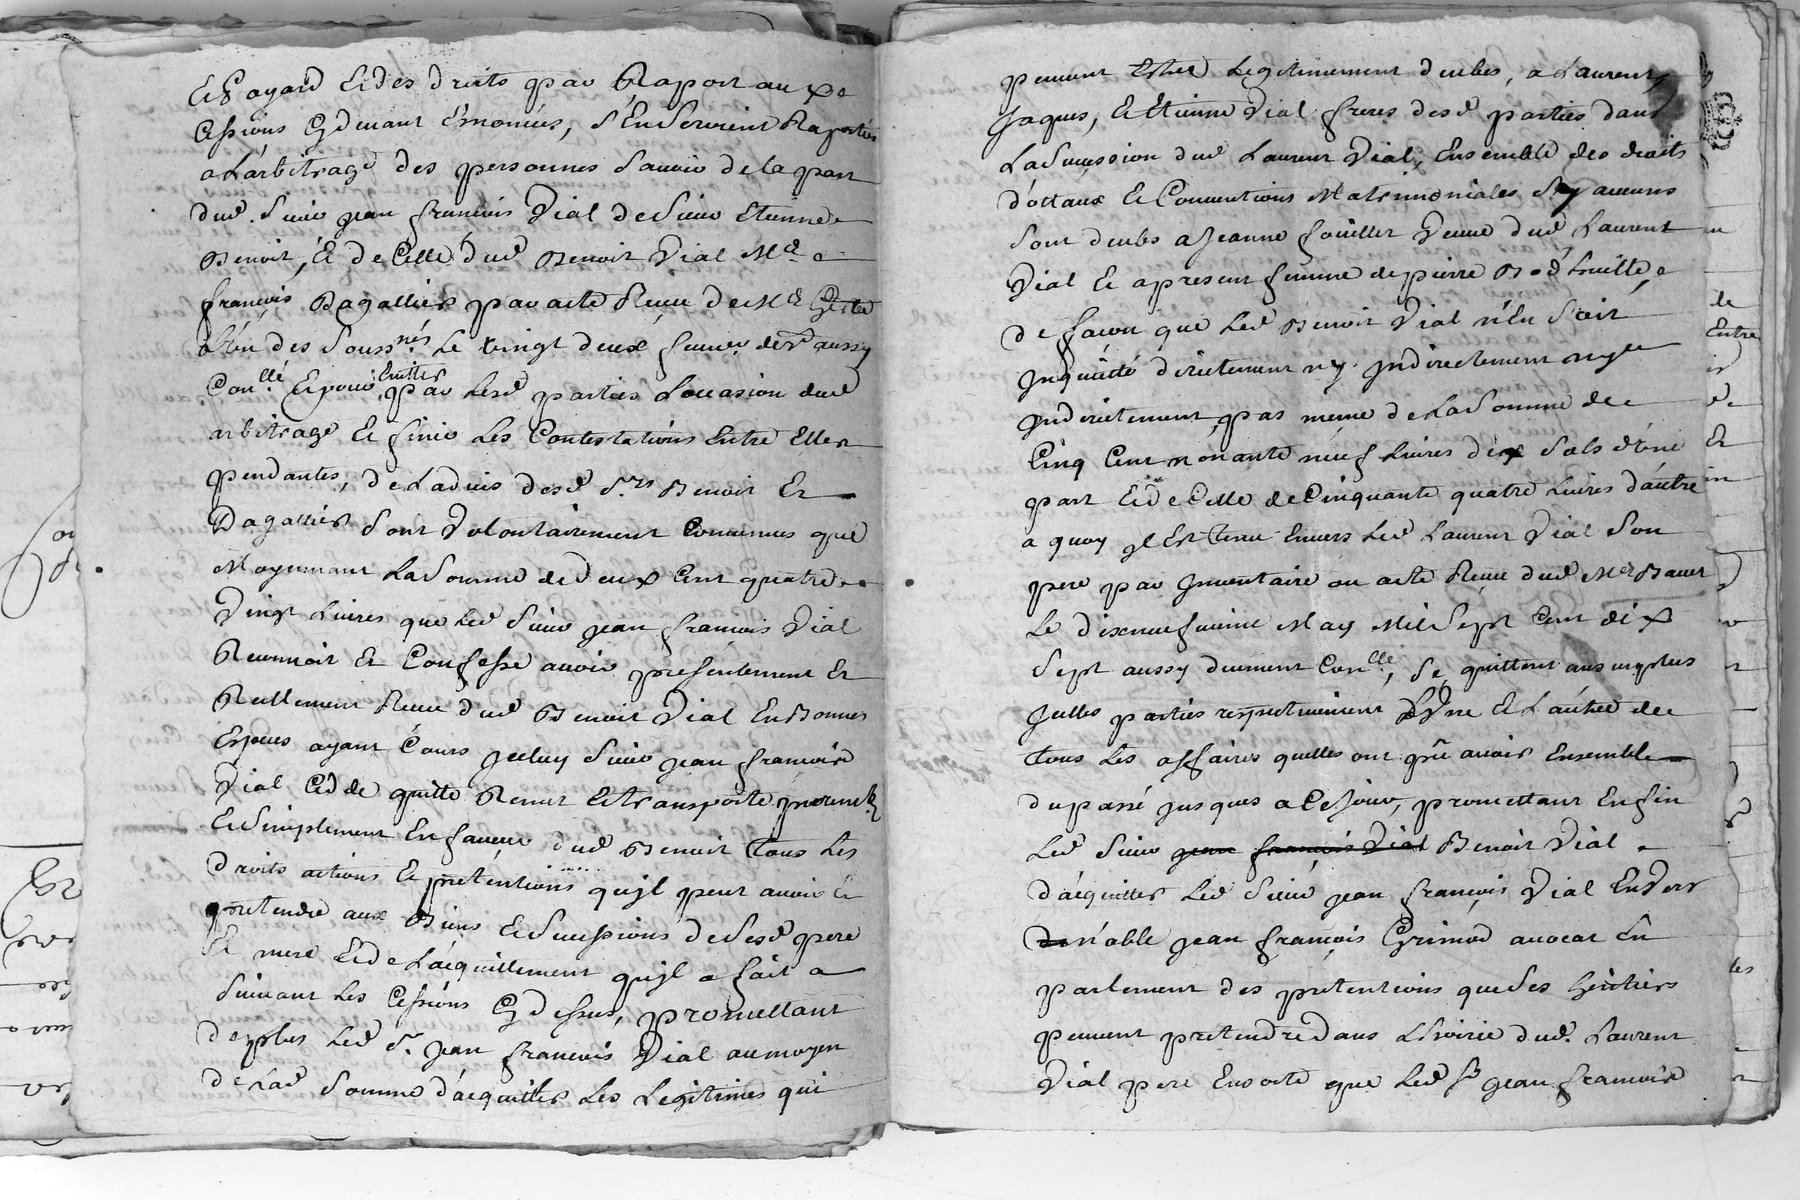 Et Esgard Et des droits par Raport aux
Cessions Cydevant Enoncées, s'En Seroient Raportées
a L'arbitrage des personnes Sauoir de la part
dud. Sieur jean françois Vial de Sieur Etienne
Benoit, Et de Celle dud Benoit Vial Me
françois Dagallier par acte Receu de Me
des Soussnés Le vingt deux aussy
Conllé Et pour Euiter par Lesd parties L'occasion dud
arbitrage Et finir Les Contestations Entre Elles
pendantes, de L'aduis desd Srs Benoit Et
Dagallier Sont Volontairement Conuenues que
Moyennant La Somme de Deux Cent quatre
Vingt Liures que Led Sieur jean francois Vial
Reconnoit Et Confesse auoir presentement Et
Reellement Receu dud Benoit Vial En Bonnes
Espèces ayant Cours jceluy Sieur jean françois
Vial Cedde quitte Remet Et transporte purement
Et Simplement En faueur dud Benoit tous Les
droits actions Et pretentions qu'jl peut auoir Et
pretendre aux Biens Et Successions de Sesd pere
Et mere Et de L'acquittement qu'jl a fait
Suiuant Les Cessions Cy dessus, promettant
de plus Led Sr jean francois Vial au moyen
de Lad Somme d'acquitter Les Legitimes qui
peuuent Estre Legitimement deubes, a Laurent,
Jaques, Et Etienne Vial freres desd parties dans
La Succession dud Laurent Vial, Ensemble des droits
d'ottaux Et Conuentions Matrimoniales Sy aucuns
Sont deubs a Jeanne Veuue dud Laurent
Vial Et a present femme de pierre
de façon que Led Benoit Vial n'En Soit
Jnquietté directement ny jndirectement ny
jndirectement, pas meme de La Somme de
Cinq Cent nonante neuf Liures dix Sols d'une
part Et de Celle de Cinquante quatre Liures d'autre
a quoy jl Est tenu Enuers Led Laurent Vial Son
pere par jnuentaire ou acte Receu dud Me
Le dixneufuieme May Mil Sept Cent dix
Sept aussy duement Conllé, Se quittent au surplus
jcelles parties respectiuement L'Vne Et L'autre de
tous Les affaires quelles ont pu auoir Ensemble
du passé jusques a Ce jour, promettant Enfin
Led Sieur jean francois Vial Benoit Vial
d'acquitter Led Sieur jean françois Vial Enuers
De noble jean françois Grimod auocat En
parlement des pretentions que Ses heritiers
peuuent pretendre dans L'hoirie dud. Laurent
Vial pere En sorte que Led Sr jean francois